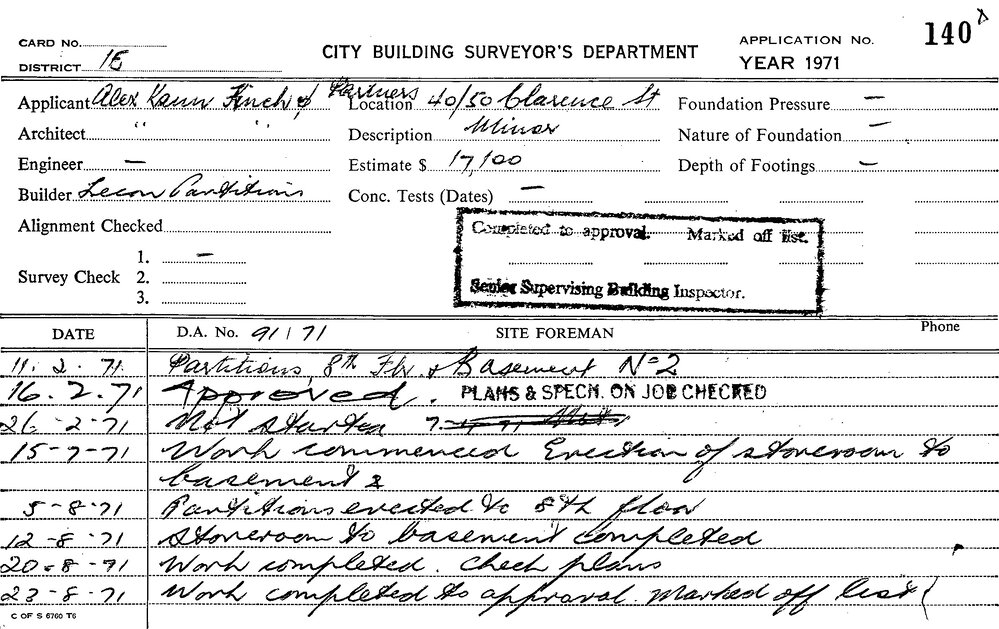 CARD No.
CITY BUILDING SURVEYOR'S DEPARTMENT
APPLICATION No. 140
DISTRICT 1E
YEAR 1971
Applicant Alex Kann Finch & Partners Location 40/50 Clarence St Foundation Pressure —
Architect " " Description Minor Nature of Foundation —
Engineer — Estimate $ 17,100 Depth of Footings —
Builder Lecon Partitions Conc. Tests (Dates) —
Alignment Checked
Completed to approval. Marked off list.
Survey Check 1. —
2.
3.
Senior Supervising Building Inspector.
DATE D.A. No. 91/71 SITE FOREMAN Phone
11.2.71 Partitions, 8th Flr & Basement No 2
16.2.71 Approved. PLANS & SPECN. ON JOB CHECKED
26-2-71 Not started
15-7-71 Work commenced Erection of storeroom to
basement 2
5-8-71 Partitions erected to 8th floor
12-8-71 Storeroom to basement completed
20-8-71 Work completed. Check plans
23-8-71 Work completed to approval. Marked off list
C OF S 6760 T6